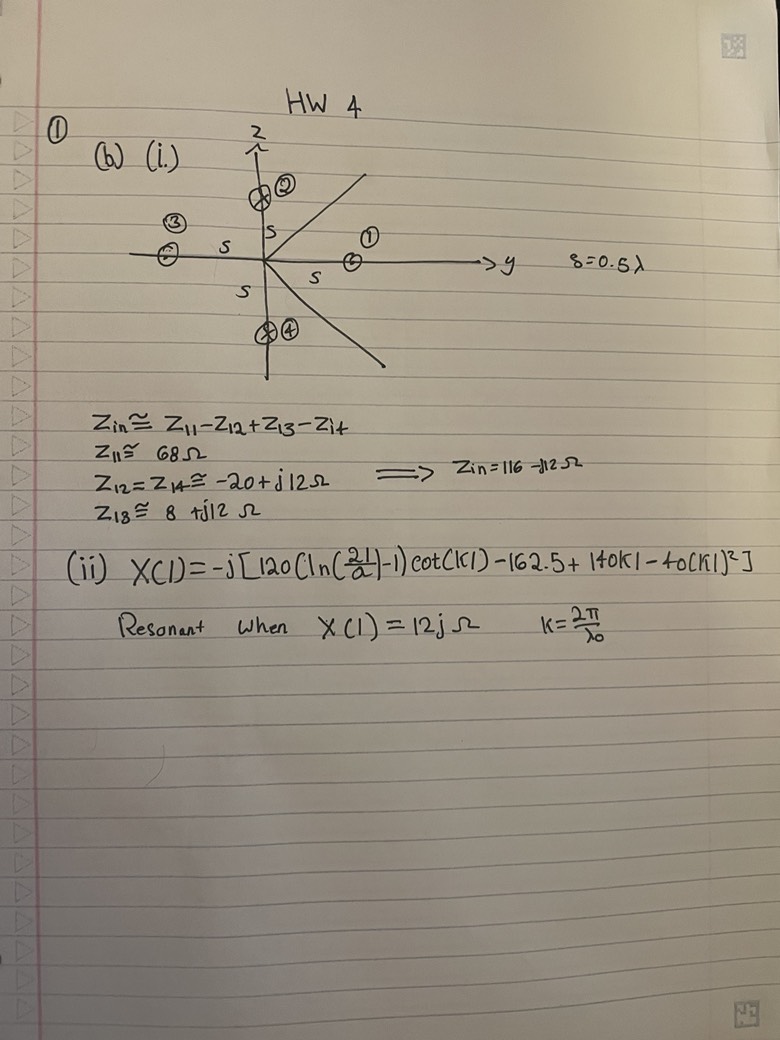 HW 4
①
(b) (i.)
z
②
③
s
s
①
y
s=0.5λ
s
s
④
Zin≅ Z11-Z12+Z13-Z14
Z11≅ 68Ω
Z12=Z14≅ -20+j12Ω ⟹ Zin=116-j12Ω
Z13≅ 8 +j12 Ω
(ii) X(l)=-j[120(ln(2l/a)-1)cot(kl)-162.5+140kl-40(kl)²]
Resonant when X(l)=12jΩ k=2π/λ0